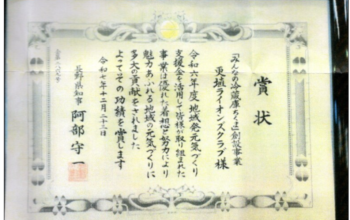 賞状
「みんなの冷蔵庫ちくま」創設事業
更埴ライオンズクラブ 様
令和六年度地域発元気づくり
支援金を活用して皆様が取り組まれた
事業は優れた着想と努力により
魅力あふれる地域の元気づくりに
多大の貢献をされました
よってその功績を賞します
令和七年十二月二十三日
長野県知事 阿部守一